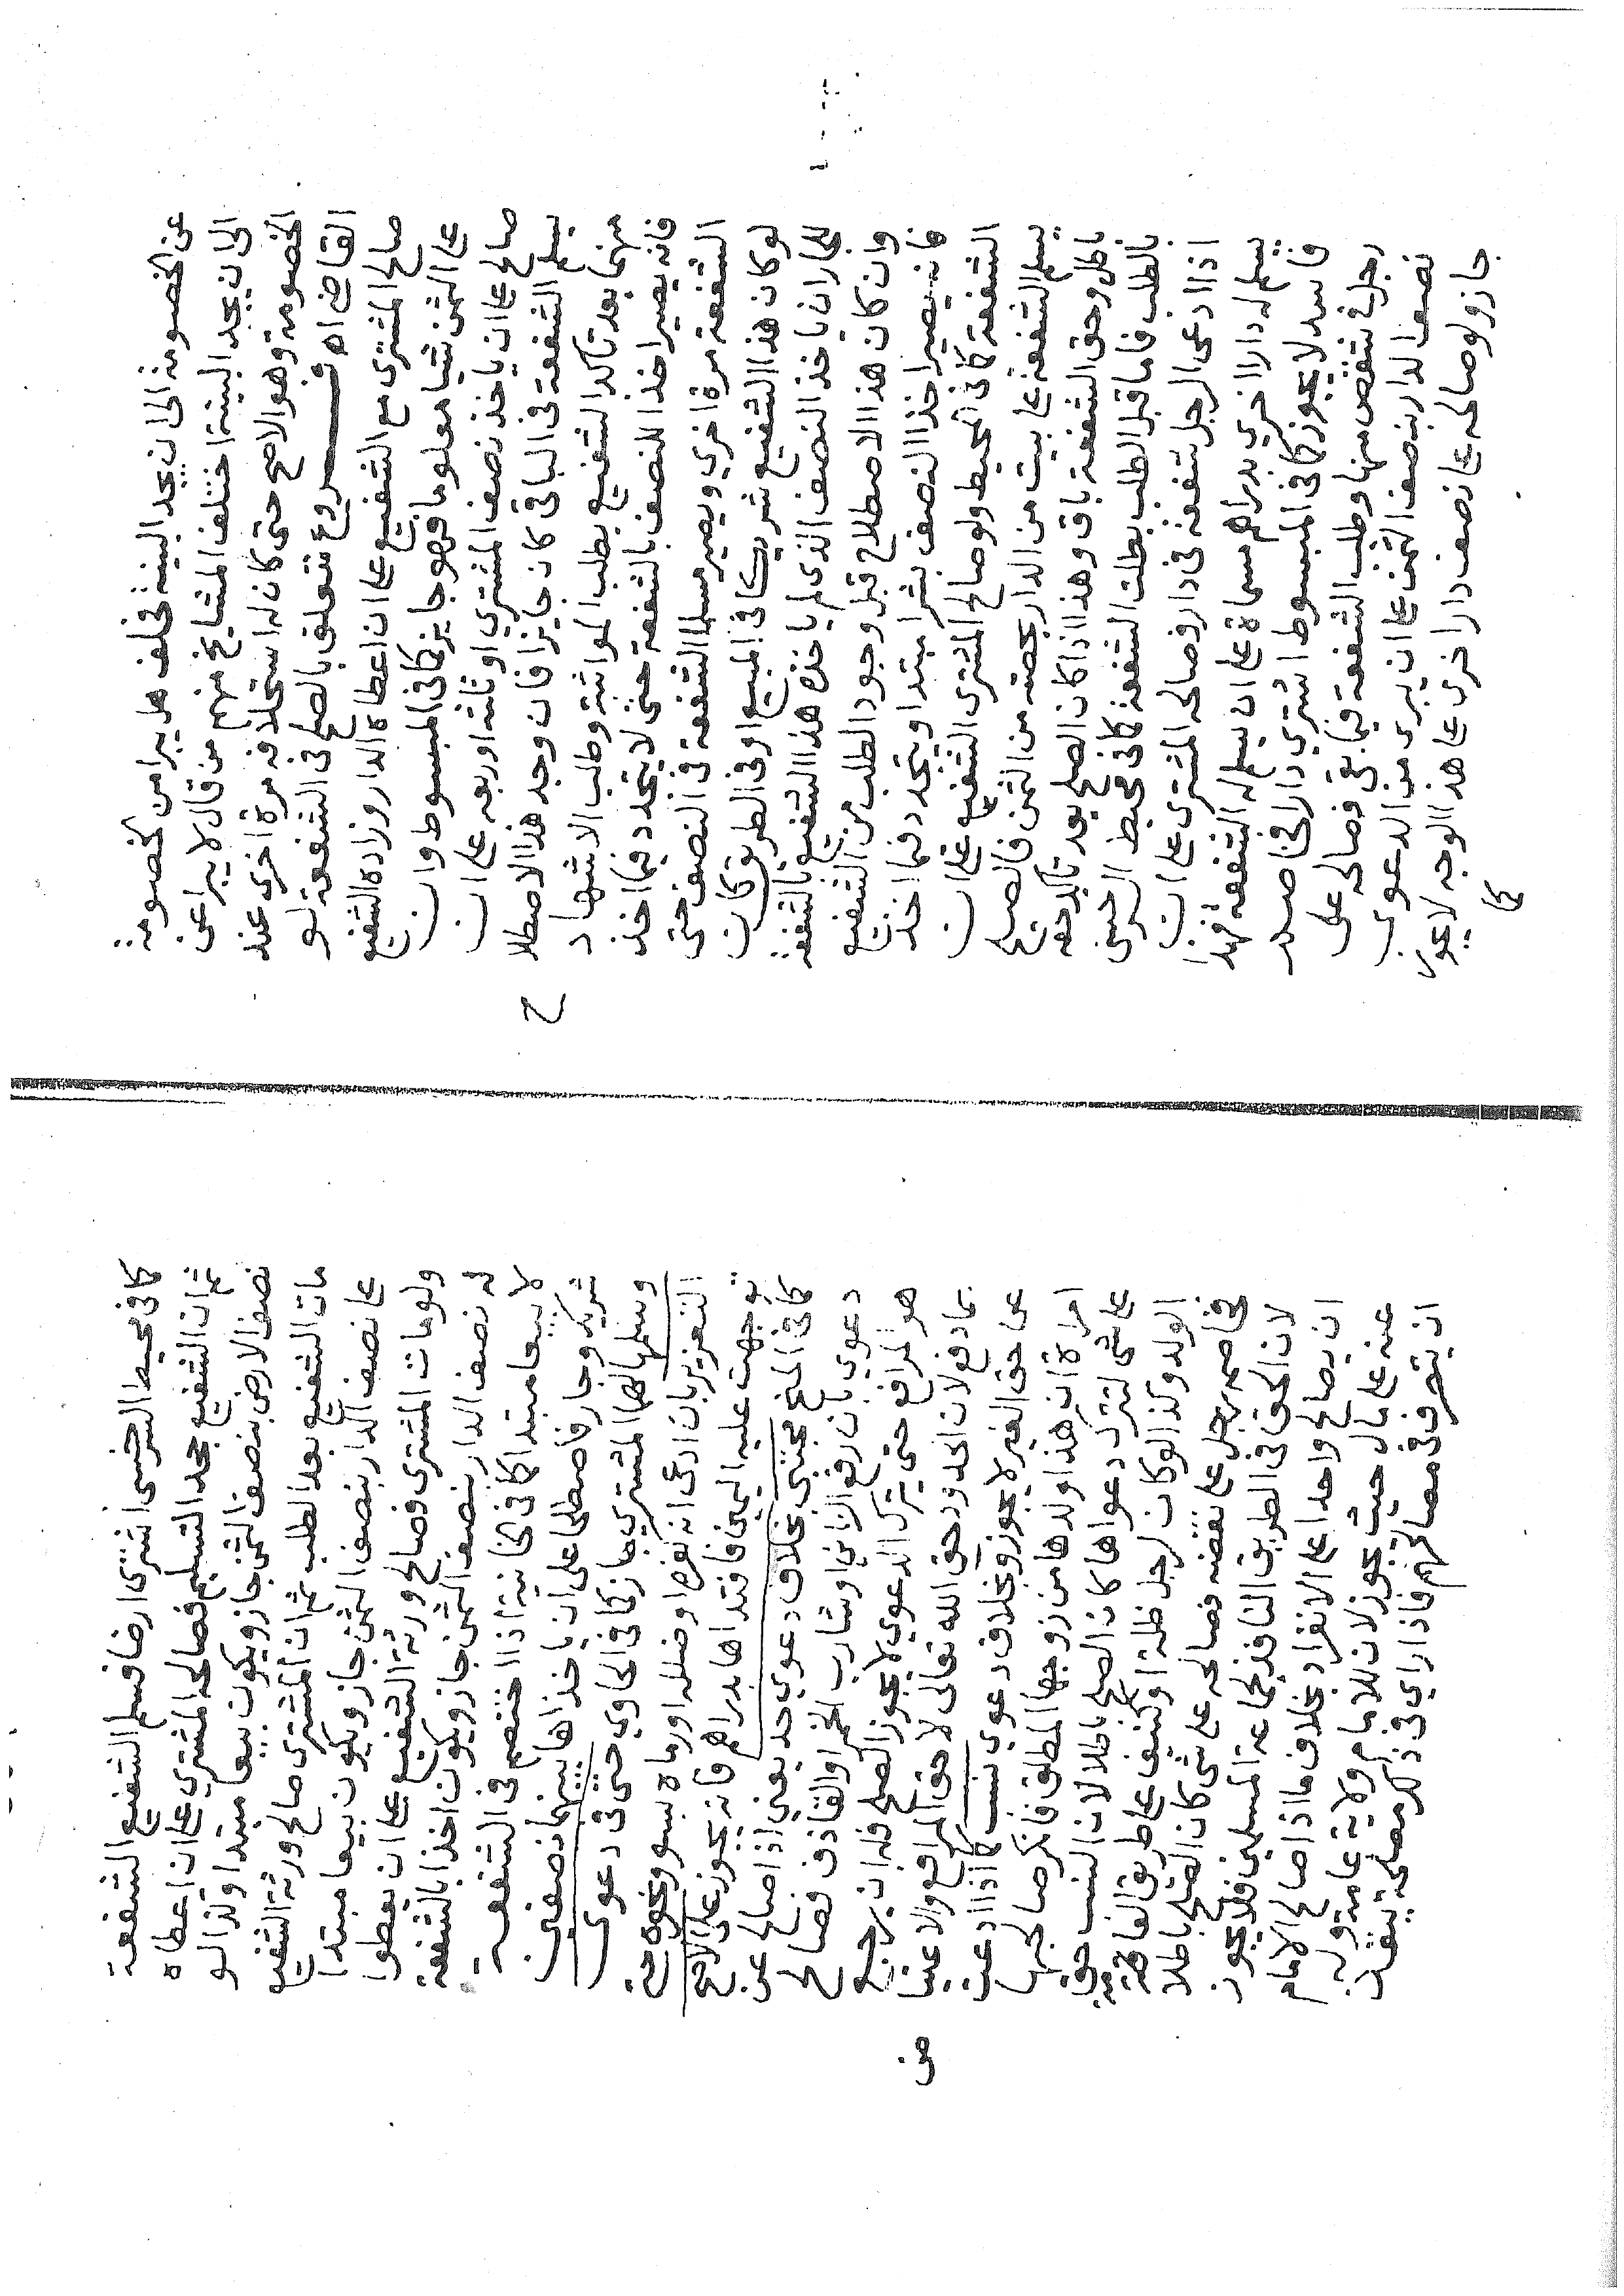 عن الخصومة الى ان يجد البينة فحلف هل يبرا من الخصومة
الى ان يجد البينة اختلف المشايخ منهم من قال لا يبرا عن
الخصومة وهو الاصح حتى كان له استحلافه مرة اخرى عند
القاضي اه فروع تتعلق بالصلح في الشفعة لو
صالح المشترى مع الشفيع على ان اعطاه الدار وزاده الشفيع
على الثمن شيا معلوما فهو جايز كما في المبسوط وان
صالح على ان ياخذ نصف المشتري او ثلثه او ربعه على ان
يسلم الشفعة في الباقي كان جايزا فان وجد هذا الاصطلا
ح
منهما بعد تاكد الشفيع بطلب المواثبة وطلب الاشهاد
فانه يصير اخذا للنصف بالشفعة حتى لا يتجدد فيما اخذ
الشفعة مرة اخري ويصير مسلما الشفعة في النصف حتى
لو كان هذا الشفيع شريكا في المبيع او في الطريق كان
للجار ان ياخذ النصف الذي لم ياخذه هذا الشفيع بالشفعة
وان كان هذا الاصطلاح قبل وجود الطلب من الشفيع
فانه يصير اخذا النصف بشرا مبتدا ويتجدد فيما اخذ
الشفعة كما في المحيط ولو صالح المشترى الشفيع على ان
يسلم الشفعة على بيت من الدار بحصته من الثمن فالصلح
باطل وحق الشفعة باق وهذا اذا كان الصلح بعد تاكيد حقه
بالطلب فاما قبل الطلب بطلت الشفعة كما في محيط السرخسي
اذا ادعى الرجل شفعة في دار فصالحه المشترى على ان
يسلم له دارا اخري بدراهم مسماة على ان يسلم له الشفعة فهذا
فاسد لا يجوز كما في المبسوط اشتري دارا فخاصمه
رجل في شقص منها وطلب الشفعة فيما بقي فصالحه على
نصف الدار بنصف الثمن على ان يبرى من الدعوي
جاز ولو صالحه على نصف دار اخرى على هذا الوجه لا يجوز
كما
كما في محيط السرخسى اشترى ارضا فسلم الشفيع الشفعة
ثم ان الشفيع جحد التسليم فصالحه المشتري على ان اعطاه
نصف الارض بنصف الثمن جاز ويكون بيعا مبتدا وكذا لو
مات الشفيع بعد الطلب ثم ان المشترى صالح ورثة الشفيع
على نصف الدار بنصف الثمن جاز ويكون بيعا مبتدا
ولو مات المشترى فصالح ورثة الشفيع على ان يعطوا
له نصف الدار بنصف الثمن جاز ويكون اخذا بالشفعة
لا بيعا مبتدا كما في الخانية اذا اختصم في الشفعة
شريك وجار فاصطلحا على ان ياخذاها بينهما نصفين
وسلمها لهما المشتري جاز كما في الحاوي حتى في دعوى
التعزير بان ادعى انه كفره او ضلله او رماه بسو ونحوه حتى
توجهت عليه اليمين فافتداها بدراهم فانه يجوز على الاصح
كما في المنح مجتبى بخلاف دعوي حد يعني اذا صالح عن
دعوي بان رفع الزاني او شارب الخمر او القاذف فصالح
هو المرافع حتى يترك الدعوي لا يجوز الصلح فله ان يرجع
بما دفع لان الحدود حق الله تعالى لا حق المرافع والاعتياض
عن حق الغير لا يجوز وبخلاف دعوي نسب كما اذا ادعت
امراة ان هذا ولدها من زوجها المطلق فانكر صالحها
على شى لترك دعواها كان الصلح باطلا لان النسب حق
الولد وكذا لو كان لرجل ظلة او كنيف على طريق العامة
فخاصمه رجل على نقضه فصالحه على شى كان الصلح باطلا
لان الحق في الطريق النافذ لجماعة المسلمين فلا يجوز
ان يصالح واحدا على الانفراد بخلاف ما اذا صالح الامام
عنه على مال حيث يجوز لان للامام ولاية عامة وله
ان يتصرف في مصالحهم فاذا راي في ذلك مصلحة ينفذ
من